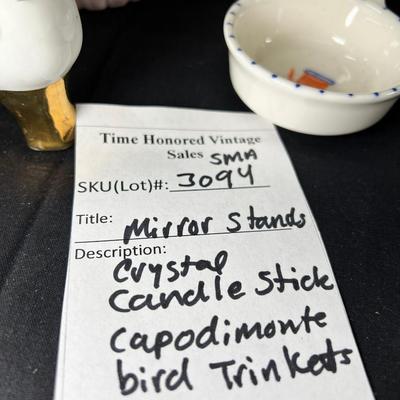 Time Honored Vintage
Sales SMA
SKU(Lot)#: 3094
Title: Mirror Stands
Description:
Crystal
Candle Stick
Capodimonte
bird Trinkets